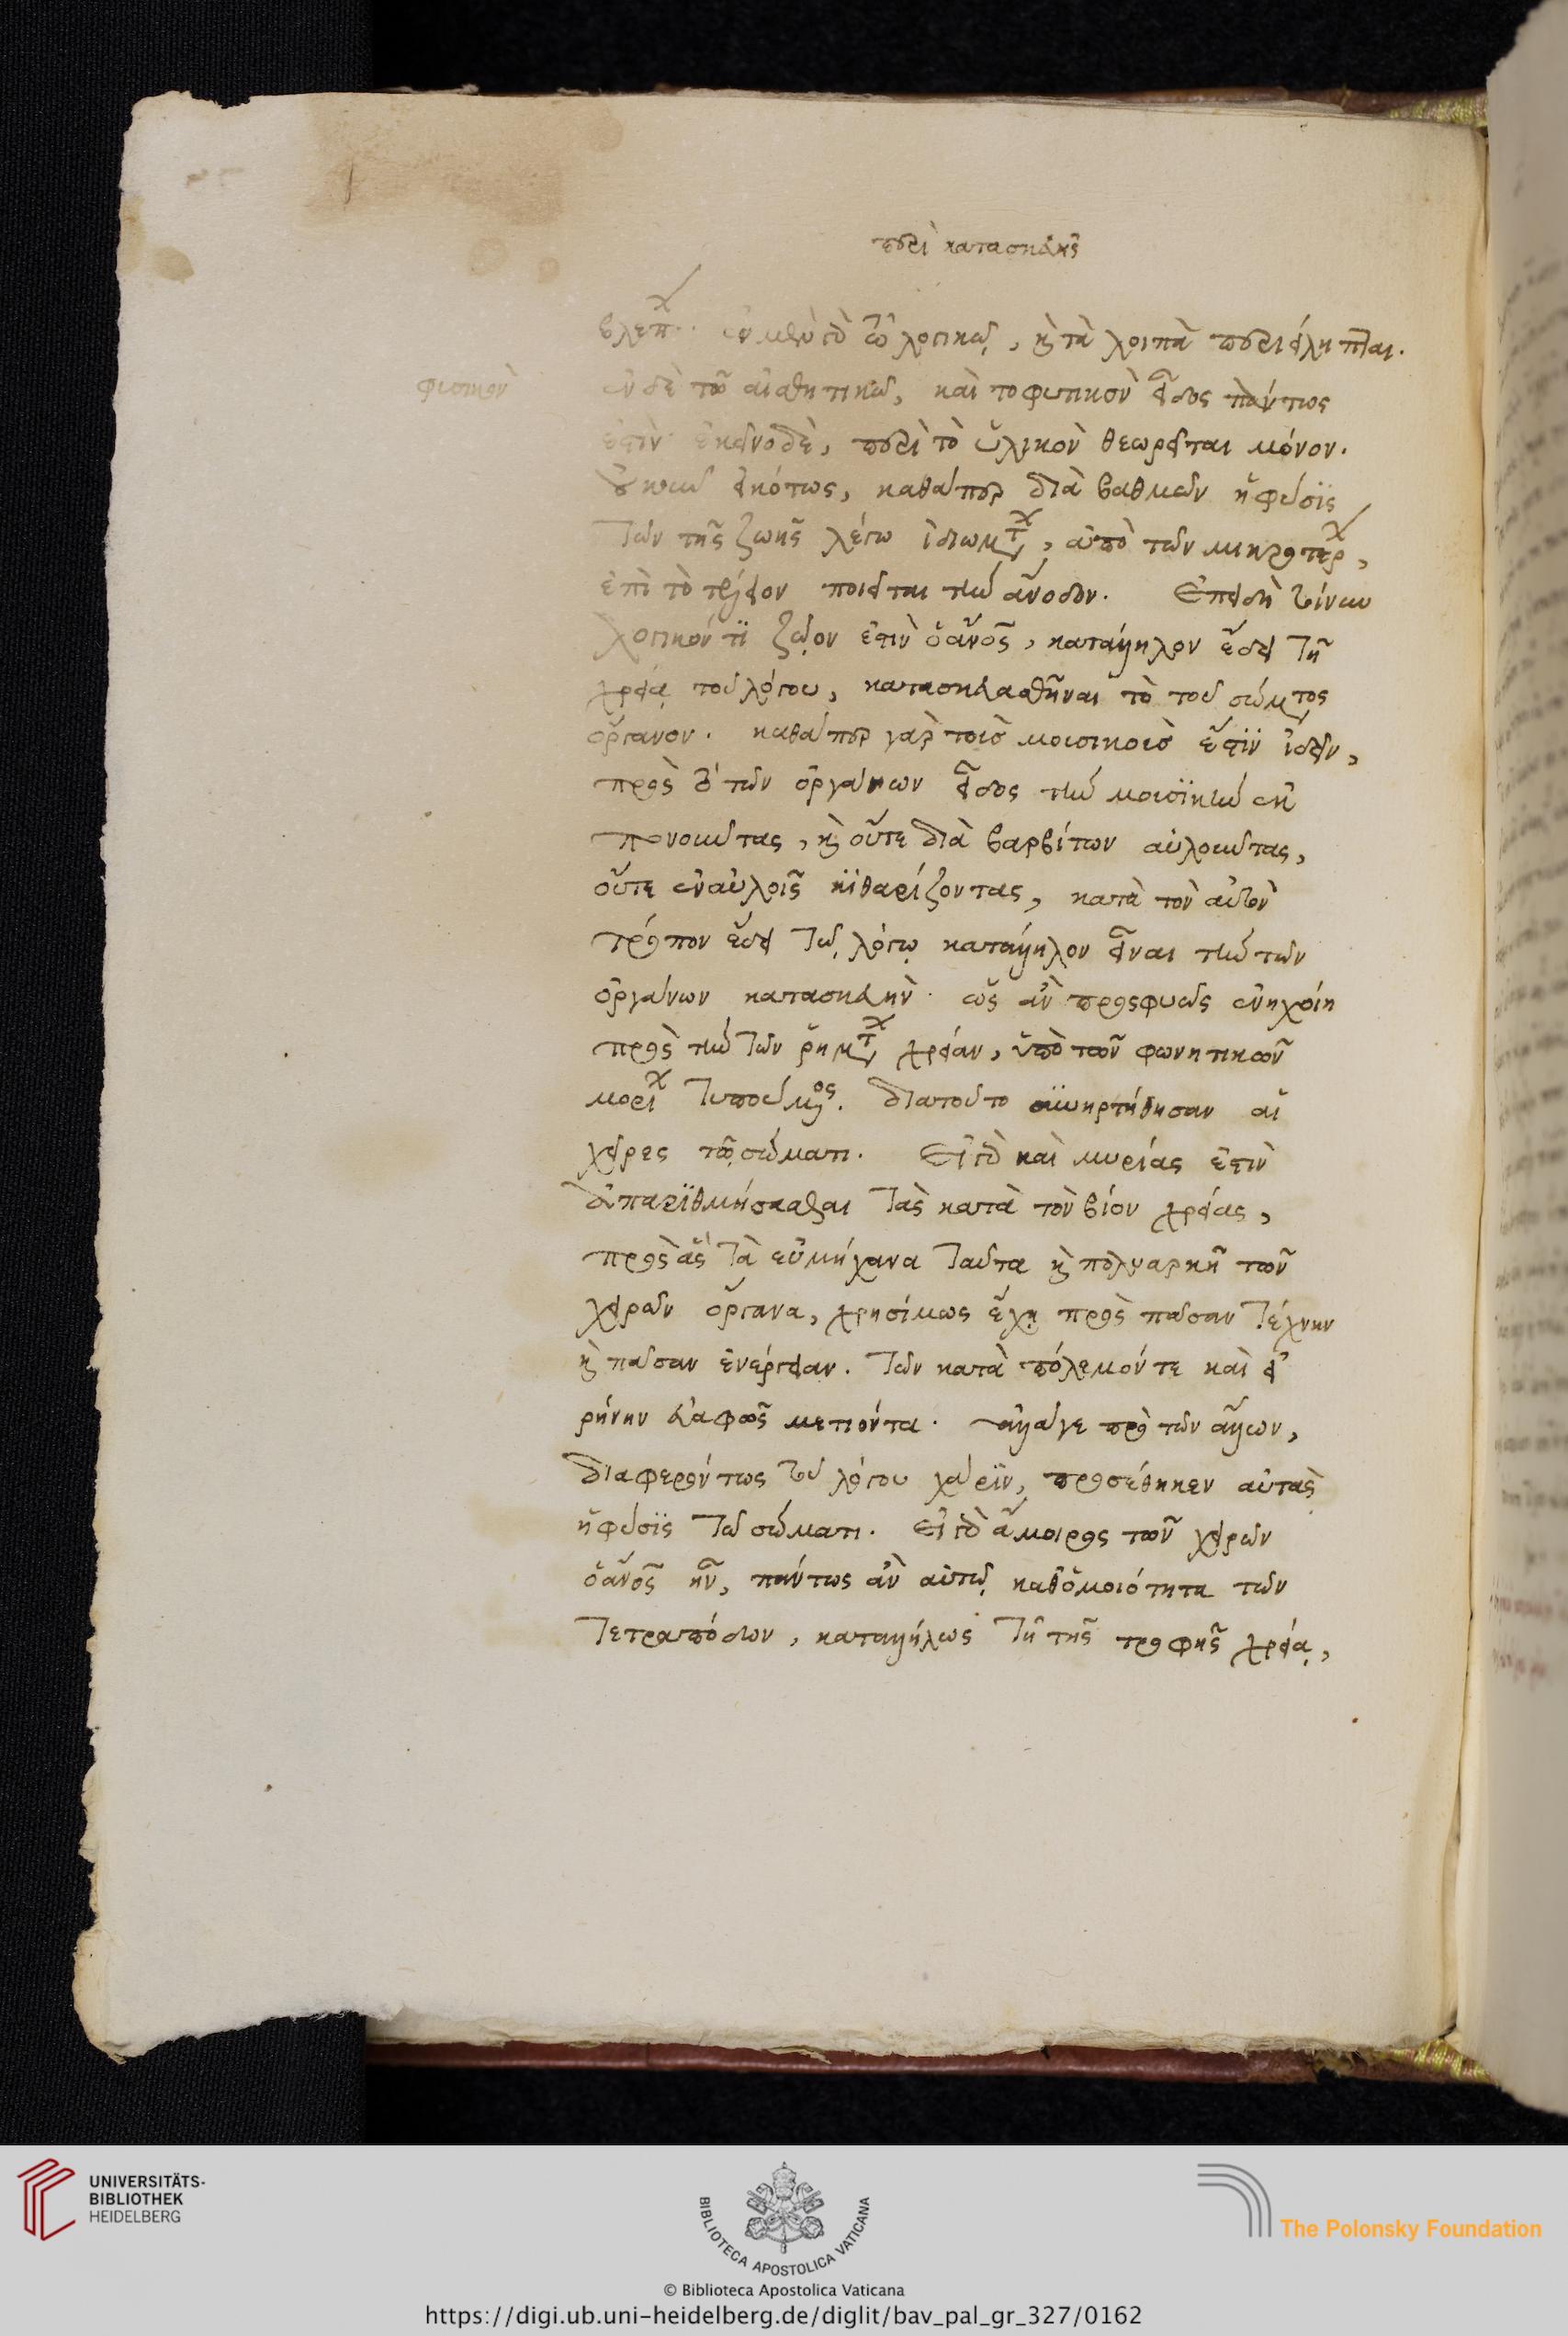 περὶ κατασκευῆς
βλεπ. ἐν μὲν γὰρ τῶ λογικῶ, καὶ τὰ λοιπὰ περιείληπται.
φυσικὸν
ἐν δὲ τῶ αἰσθητικῶ, καὶ το φυτικὸν εἶδος πάντως
ἐστὶν ἐκεῖνο δὲ, περὶ τὸ ὑλικὸν θεωρεῖται μόνον.
οὐκοῦν εἰκότως, καθάπερ διὰ βαθμῶν ἡ φύσϊς
τῶν τῆς ζωῆς λέγω ἰδιωμάτων, ἀπὸ τῶν μικροτερων,
ἐπὶ τὸ τέλειον ποιεῖται τὴν ἄνοδον. Ἐπειδὴ τοίνυν
λογικόν τϊ ζῶον ἐστὶν ὁ ἄνος, κατάλληλον ἔδει τῆ
χρεία τοῦ λόγου, κατασκευασθῆναι τὸ τοῦ σώματος
ὄργανον. καθάπερ γὰρ τοῖσ μουσικοῖσ ἔστϊν ἰδεῖν,
πρὸς τὸ τῶν ὀργάνων εἶδος τὴν μουσϊκὴν ἐκ
πονοῦντας, καὶ οὔτε διὰ βαρβίτων αὐλοῦντας,
οὔτε ἐν αὐλοῖς κϊθαρίζοντας, κατὰ τὸν αὐτὸν
τρόπον ἔδει τῶ λόγω κατάλληλον εἶναι τὴν τῶν
ὀργάνων κατασκευὴν. ὡς ἂν προςφυῶς ἐνηχοίη
πρὸς τὴν τῶν ῥημάτων χρείαν, ὑπὸ τῶν φωνητικῶν
μορίων τυπούμενος. διατοῦτο συνηρτήθησαν αἱ
χεῖρες τῶ σώματι. Εἰ γὰρ καὶ μυρίας ἐστὶν
ἀπαρϊθμήσασθαι τὰς κατὰ τὸν βίον χρείας,
πρὸς ἃς τὰ εὐμήχανα ταῦτα καὶ πολυαρκῆ τῶν
χειρῶν ὄργανα, χρησίμως ἔχη πρὸς πᾶσαν τέχνην
καὶ πᾶσαν ἐνέργειαν. τῶν κατὰ πόλεμόν τε καὶ εἰ
ρήνην εὐαφῶς μετιόντα. ἀλλάγε πρὸ τῶν ἄλλων,
διαφερόντως τοῦ λόγου χάρϊν, προσέθηκεν αὐτὰς
ἡ φύσϊς τῶ σώματι. Εἰ γὰρ ἄμοιρος τῶν χειρῶν
ὁ ἄνος ἦν, πάντως ἂν αὐτῶ καθ' ὁμοιότητα τῶν
τετραπόδων, καταλλήλως τῆ τῆς τροφῆς χρεία,
UNIVERSITÄTS-
BIBLIOTHEK
HEIDELBERG
BIBLIOTECA APOSTOLICA VATICANA
The Polonsky Foundation
© Biblioteca Apostolica Vaticana
https://digi.ub.uni-heidelberg.de/diglit/bav_pal_gr_327/0162